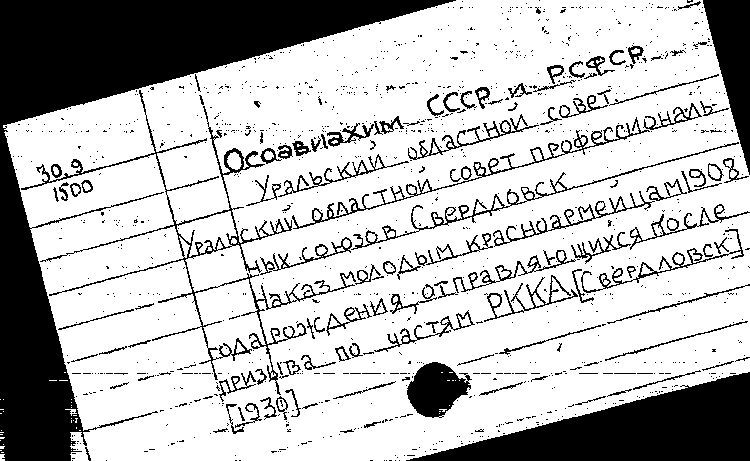 30.9
1500
Осоавиахим СССР и РСФСР
Уральский областной совет.
Уральский областной совет профессиональ-
ных союзов Свердловск
Наказ молодым красноармейцам 1908
года рождения, отправляющихся после
призыва по частям РККА [Свердловск]
[1930]